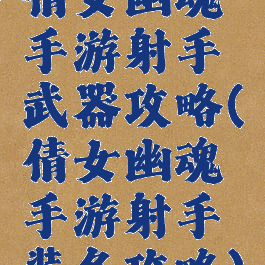 倩女幽魂
手游射手
武器攻略(
倩女幽魂
手游射手
装备攻略)